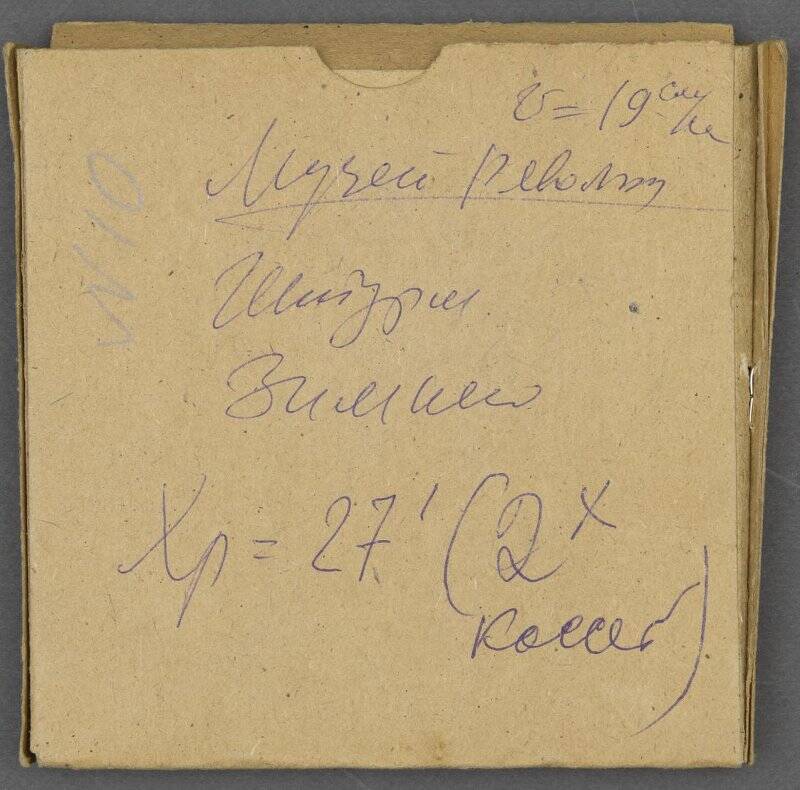 v = 19 см/с
Музей Револ.
Штурм
Зимнего
Хр = 27' (2х
кассет)
N10